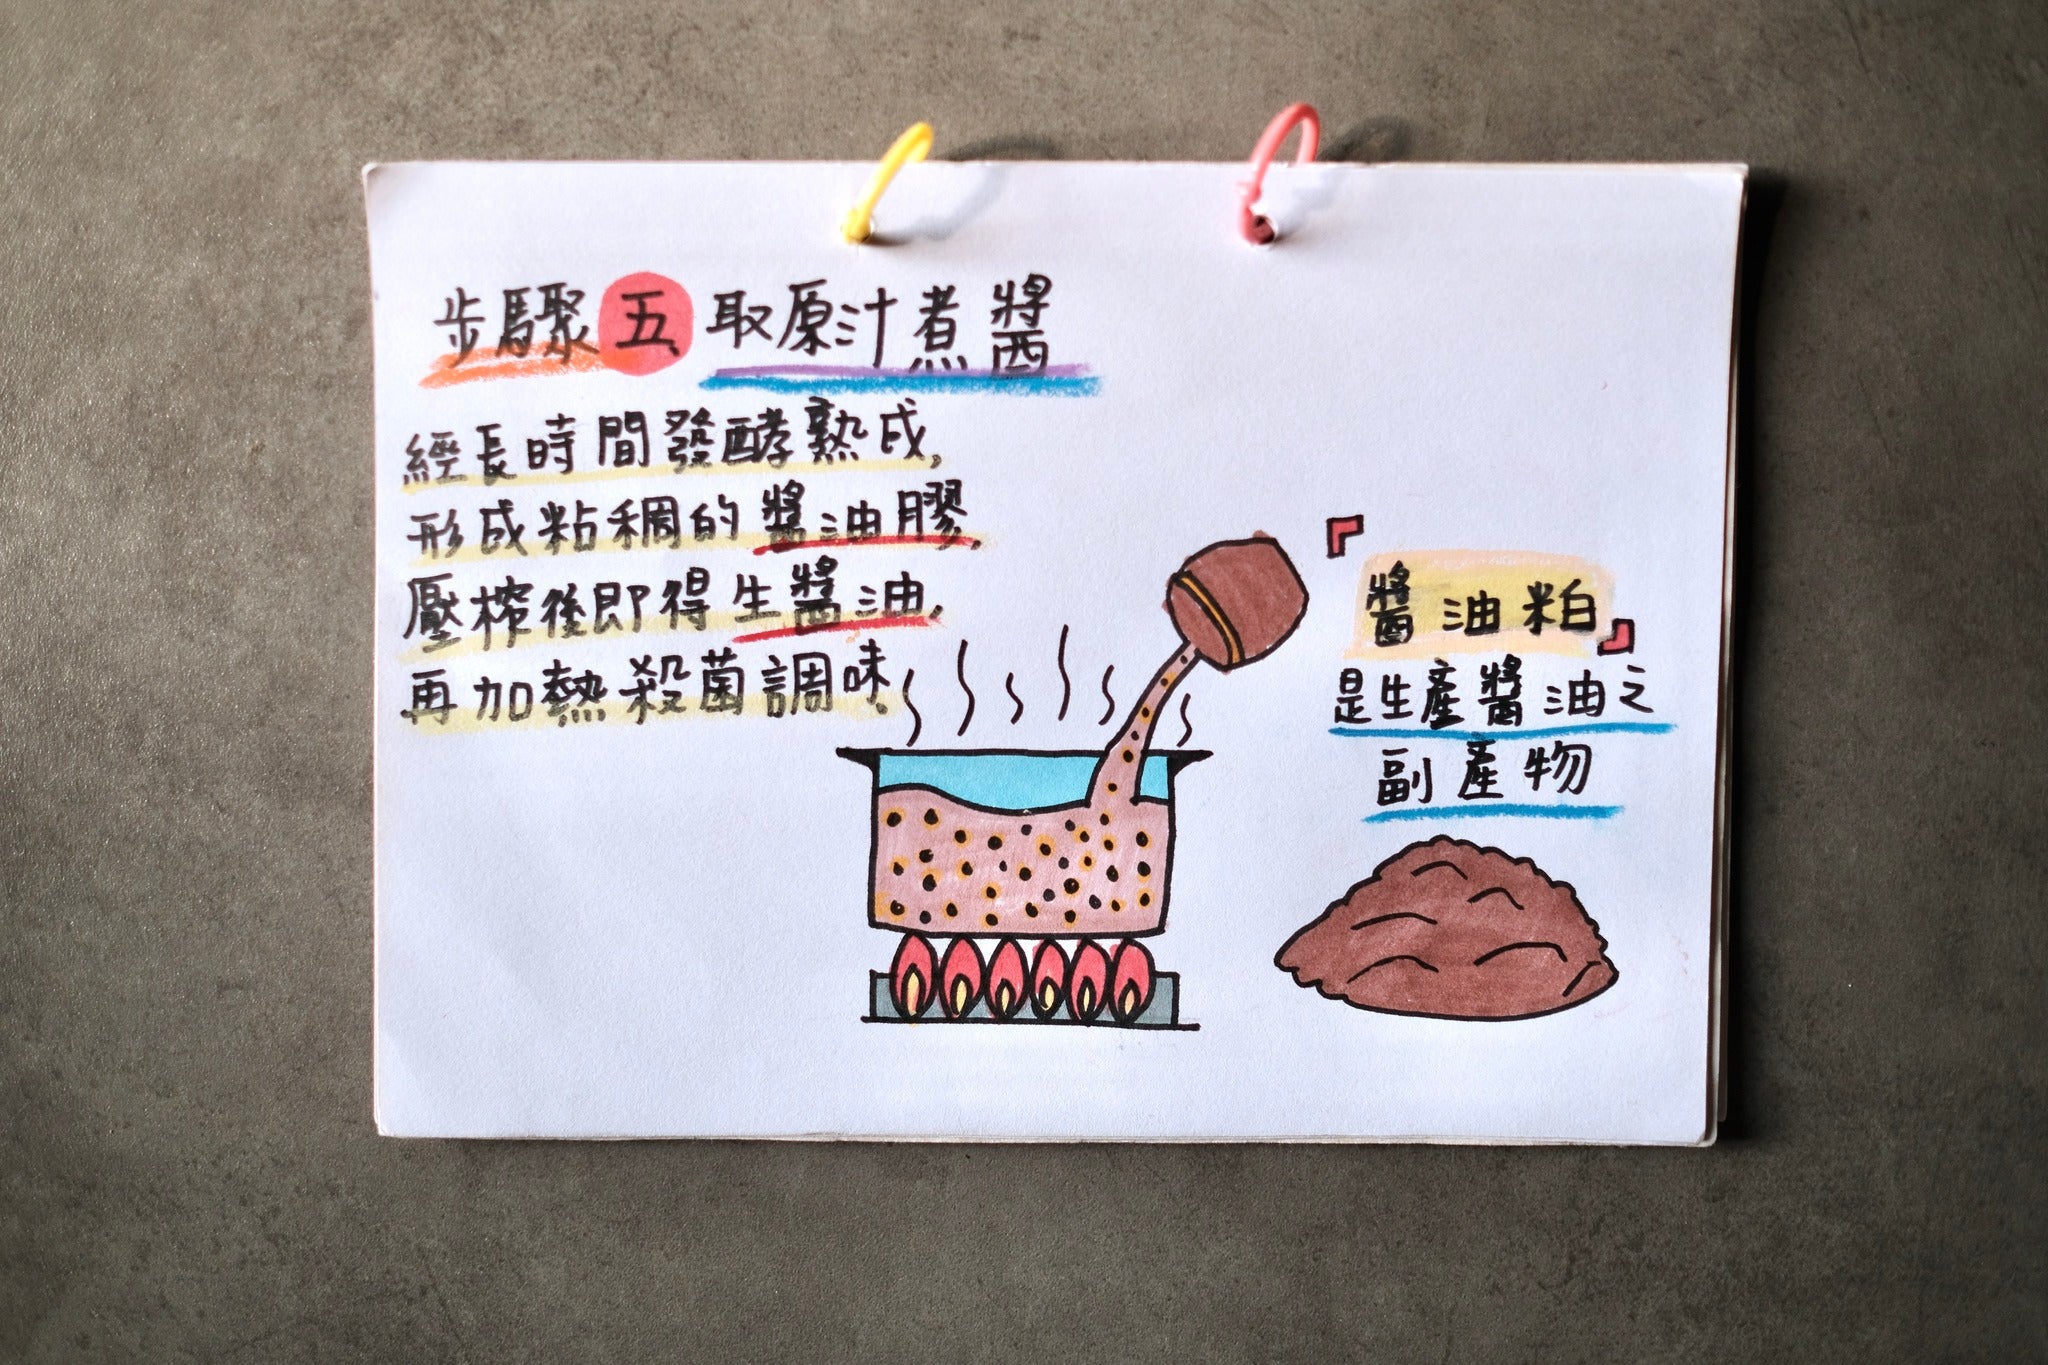 步驟五、取原汁煮醬
經長時間發酵熟成,
形成粘稠的醬油膠,
壓榨後即得生醬油,
再加熱殺菌調味、
『醬油粕』
是生產醬油之
副產物